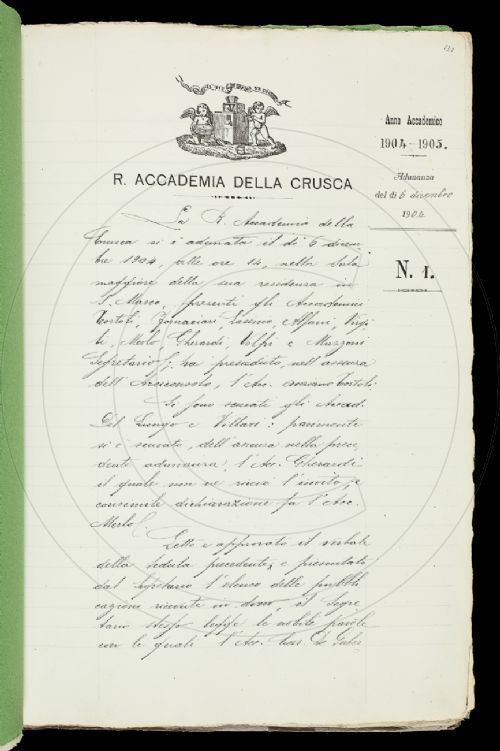 Anno Accademico
1904-1905.
Adunanza
del dì 6 dicembre
1904
N. 1.
R. ACCADEMIA DELLA CRUSCA
La R. Accademia della
Crusca si è adunata il dì 6 dicem
bre 1904, alle ore 14, nella Sala
maggiore della sua residenza in
S. Marco, presenti gli Accademici
Tortoli, Tognacini, Lasinio, Alfani, Virgi
li, Merlo, Gherardi, Volpi e Mazzoni
Segretario; ha preseduto, nell'assenza
dell'Arciconsolo, l'Acc. anziano Tortoli.
Si sono scusati gli Accad.
Del Lungo e Villari: parimente
si è scusato, dell'assenza nella prece
dente adunanza, l'Acc. Gherardi
il quale non ne ricevè l'invito; e
consimile dichiarazione fa l'Acc.
Merlo.
Letto e approvato il verbale
della seduta precedente, e presentato
dal Segretario l'elenco delle pubbli
cazioni ricevute in dono, il Segre
tario stesso legge le nobili parole
con le quali l'Acc. Corr. De Guber